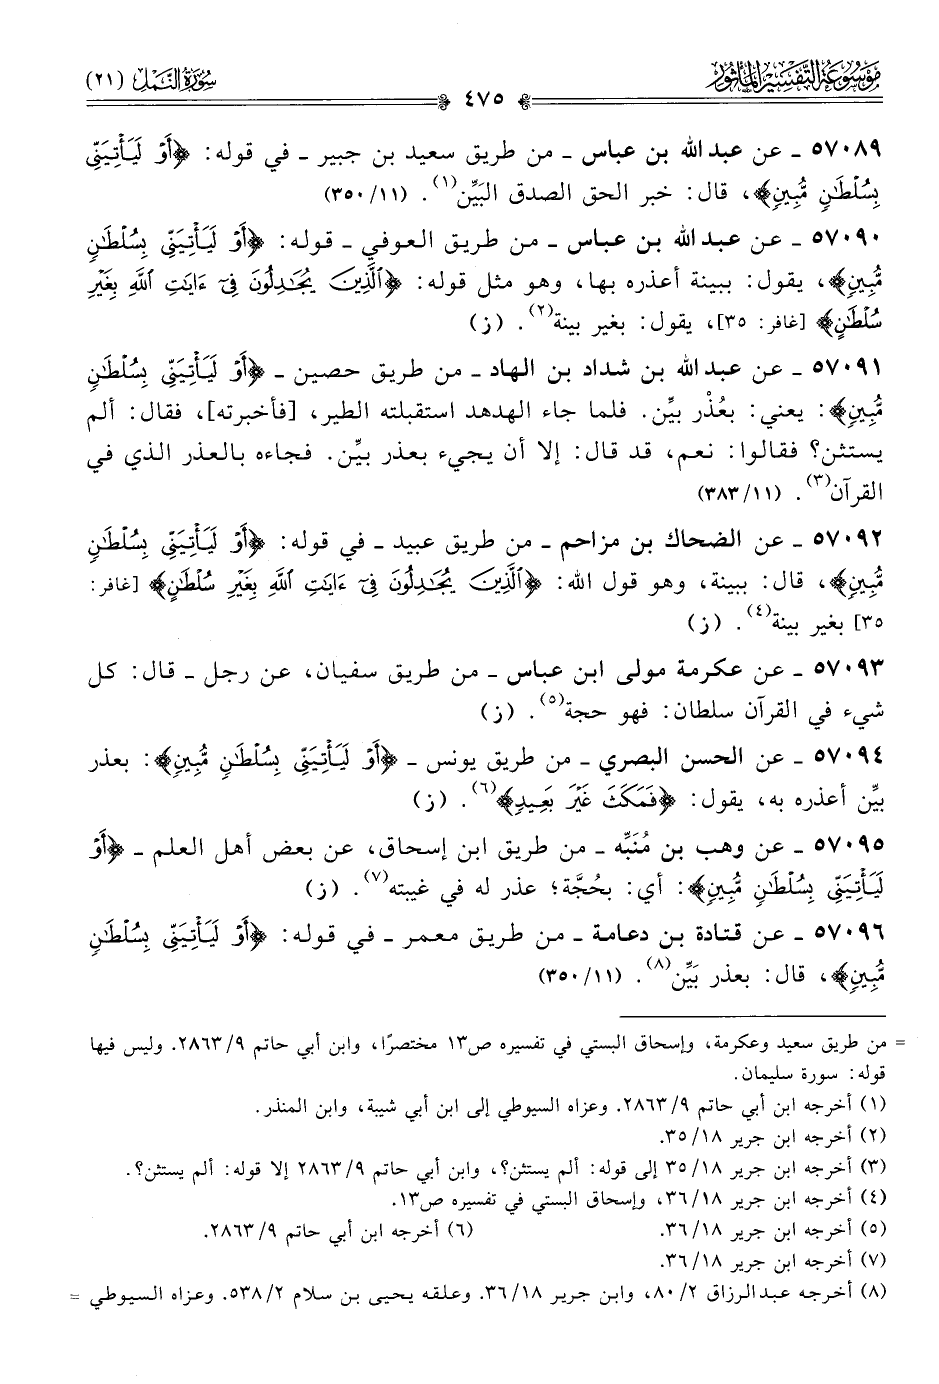 موسوعة التفسير المأثور
٤٧٥
سورة النمل (٢١)
٥٧٠٨٩ ـ عن عبد الله بن عباس ـ من طريق سعيد بن جبير ـ في قوله: ﴿أَوْ لَيَأْتِيَنِّي
بِسُلْطَانٍ مُّبِينٍ﴾، قال: خبر الحق الصدق البَيِّن(١). (٣٥٠/١١)
٥٧٠٩٠ ـ عن عبد الله بن عباس ـ من طريق العوفي ـ قوله: ﴿أَوْ لَيَأْتِيَنِّي بِسُلْطَانٍ
مُّبِينٍ﴾، يقول: ببينة أعذره بها، وهو مثل قوله: ﴿الَّذِينَ يُجَادِلُونَ فِي ءَايَاتِ اللَّهِ بِغَيْرِ
سُلْطَانٍ﴾ [غافر: ٣٥]، يقول: بغير بينة(٢). (ز)
٥٧٠٩١ ـ عن عبد الله بن شداد بن الهاد ـ من طريق حصين ـ ﴿أَوْ لَيَأْتِيَنِّي بِسُلْطَانٍ
مُّبِينٍ﴾: يعني: بعُذْر بيِّن. فلما جاء الهدهد استقبلته الطير، [فأخبرته]، فقال: ألم
يستثن؟ فقالوا: نعم، قد قال: إلا أن يجيء بعذر بيِّن. فجاءه بالعذر الذي في
القرآن(٣). (٣٨٣/١١)
٥٧٠٩٢ ـ عن الضحاك بن مزاحم ـ من طريق عبيد ـ في قوله: ﴿أَوْ لَيَأْتِيَنِّي بِسُلْطَانٍ
مُّبِينٍ﴾، قال: ببينة، وهو قول الله: ﴿الَّذِينَ يُجَادِلُونَ فِي ءَايَاتِ اللَّهِ بِغَيْرِ سُلْطَانٍ﴾ [غافر:
٣٥] بغير بينة(٤). (ز)
٥٧٠٩٣ ـ عن عكرمة مولى ابن عباس ـ من طريق سفيان، عن رجل ـ قال: كل
شيء في القرآن سلطان: فهو حجة(٥). (ز)
٥٧٠٩٤ ـ عن الحسن البصري ـ من طريق يونس ـ ﴿أَوْ لَيَأْتِيَنِّي بِسُلْطَانٍ مُّبِينٍ﴾: بعذر
بيِّن أعذره به، يقول: ﴿فَمَكَثَ غَيْرَ بَعِيدٍ﴾(٦). (ز)
٥٧٠٩٥ ـ عن وهب بن مُنَبِّه ـ من طريق ابن إسحاق، عن بعض أهل العلم ـ ﴿أَوْ
لَيَأْتِيَنِّي بِسُلْطَانٍ مُّبِينٍ﴾: أي: بحُجَّة؛ عذر له في غيبته(٧). (ز)
٥٧٠٩٦ ـ عن قتادة بن دعامة ـ من طريق معمر ـ في قوله: ﴿أَوْ لَيَأْتِيَنِّي بِسُلْطَانٍ
مُّبِينٍ﴾، قال: بعذر بَيِّن(٨). (٣٥٠/١١)
= من طريق سعيد وعكرمة، وإسحاق البستي في تفسيره ص١٣ مختصرًا، وابن أبي حاتم ٢٨٦٣/٩. وليس فيها
قوله: سورة سليمان.
(١) أخرجه ابن أبي حاتم ٢٨٦٣/٩. وعزاه السيوطي إلى ابن أبي شيبة، وابن المنذر.
(٢) أخرجه ابن جرير ٣٥/١٨.
(٣) أخرجه ابن جرير ٣٥/١٨ إلى قوله: ألم يستثن؟، وابن أبي حاتم ٢٨٦٣/٩ إلا قوله: ألم يستثن؟.
(٤) أخرجه ابن جرير ٣٦/١٨، وإسحاق البستي في تفسيره ص١٣.
(٥) أخرجه ابن جرير ٣٦/١٨. (٦) أخرجه ابن أبي حاتم ٢٨٦٣/٩.
(٧) أخرجه ابن جرير ٣٦/١٨.
(٨) أخرجه عبد الرزاق ٨٠/٢، وابن جرير ٣٦/١٨. وعلقه يحيى بن سلام ٥٣٨/٢. وعزاه السيوطي =